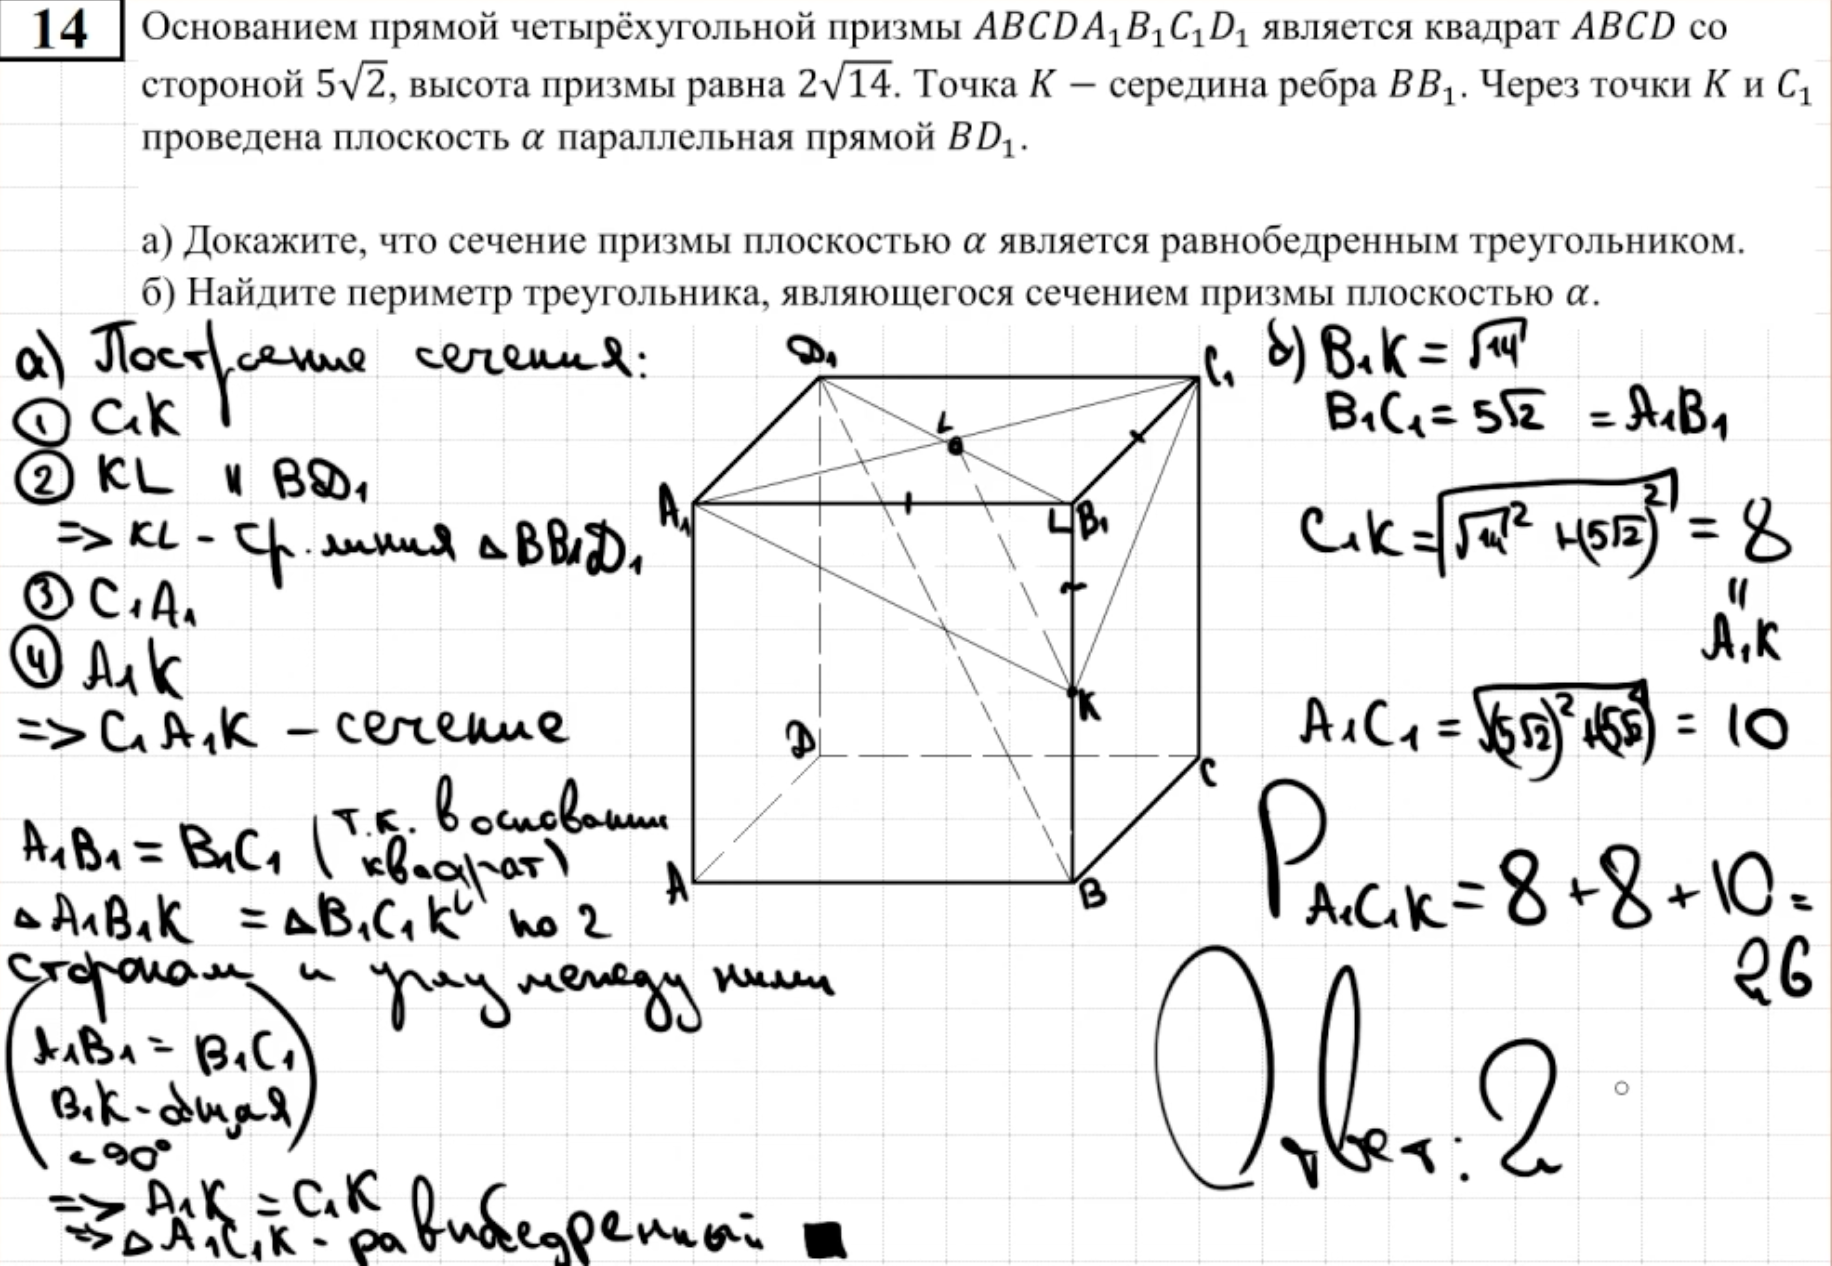 14
Основанием прямой четырёхугольной призмы ABCDA₁B₁C₁D₁ является квадрат ABCD со
стороной 5√2, высота призмы равна 2√14. Точка K – середина ребра BB₁. Через точки K и C₁
проведена плоскость α параллельная прямой BD₁.
а) Докажите, что сечение призмы плоскостью α является равнобедренным треугольником.
б) Найдите периметр треугольника, являющегося сечением призмы плоскостью α.
а) Построение сечения:
① C₁K
② KL || BD₁
=> KL - ср. линия △BB₁D₁
③ C₁A₁
④ A₁K
=> C₁A₁K – сечение
A₁B₁ = B₁C₁ (т.к. в основании
квадрат)
△A₁B₁K = △B₁C₁K по 2
сторонам и углу между ними
(A₁B₁ = B₁C₁
B₁K - общая
∠90°)
=> A₁K = C₁K
=> △A₁C₁K - равнобедренный ■
D₁
C₁
L
A₁
B₁
K
D
C
A
B
б) B₁K = √14
B₁C₁ = 5√2 = A₁B₁
C₁K = √(√14² + (5√2)²) = 8
||
A₁K
A₁C₁ = √((5√2)² + (5√2)²) = 10
P A₁C₁K = 8 + 8 + 10 =
26
Ответ: 2